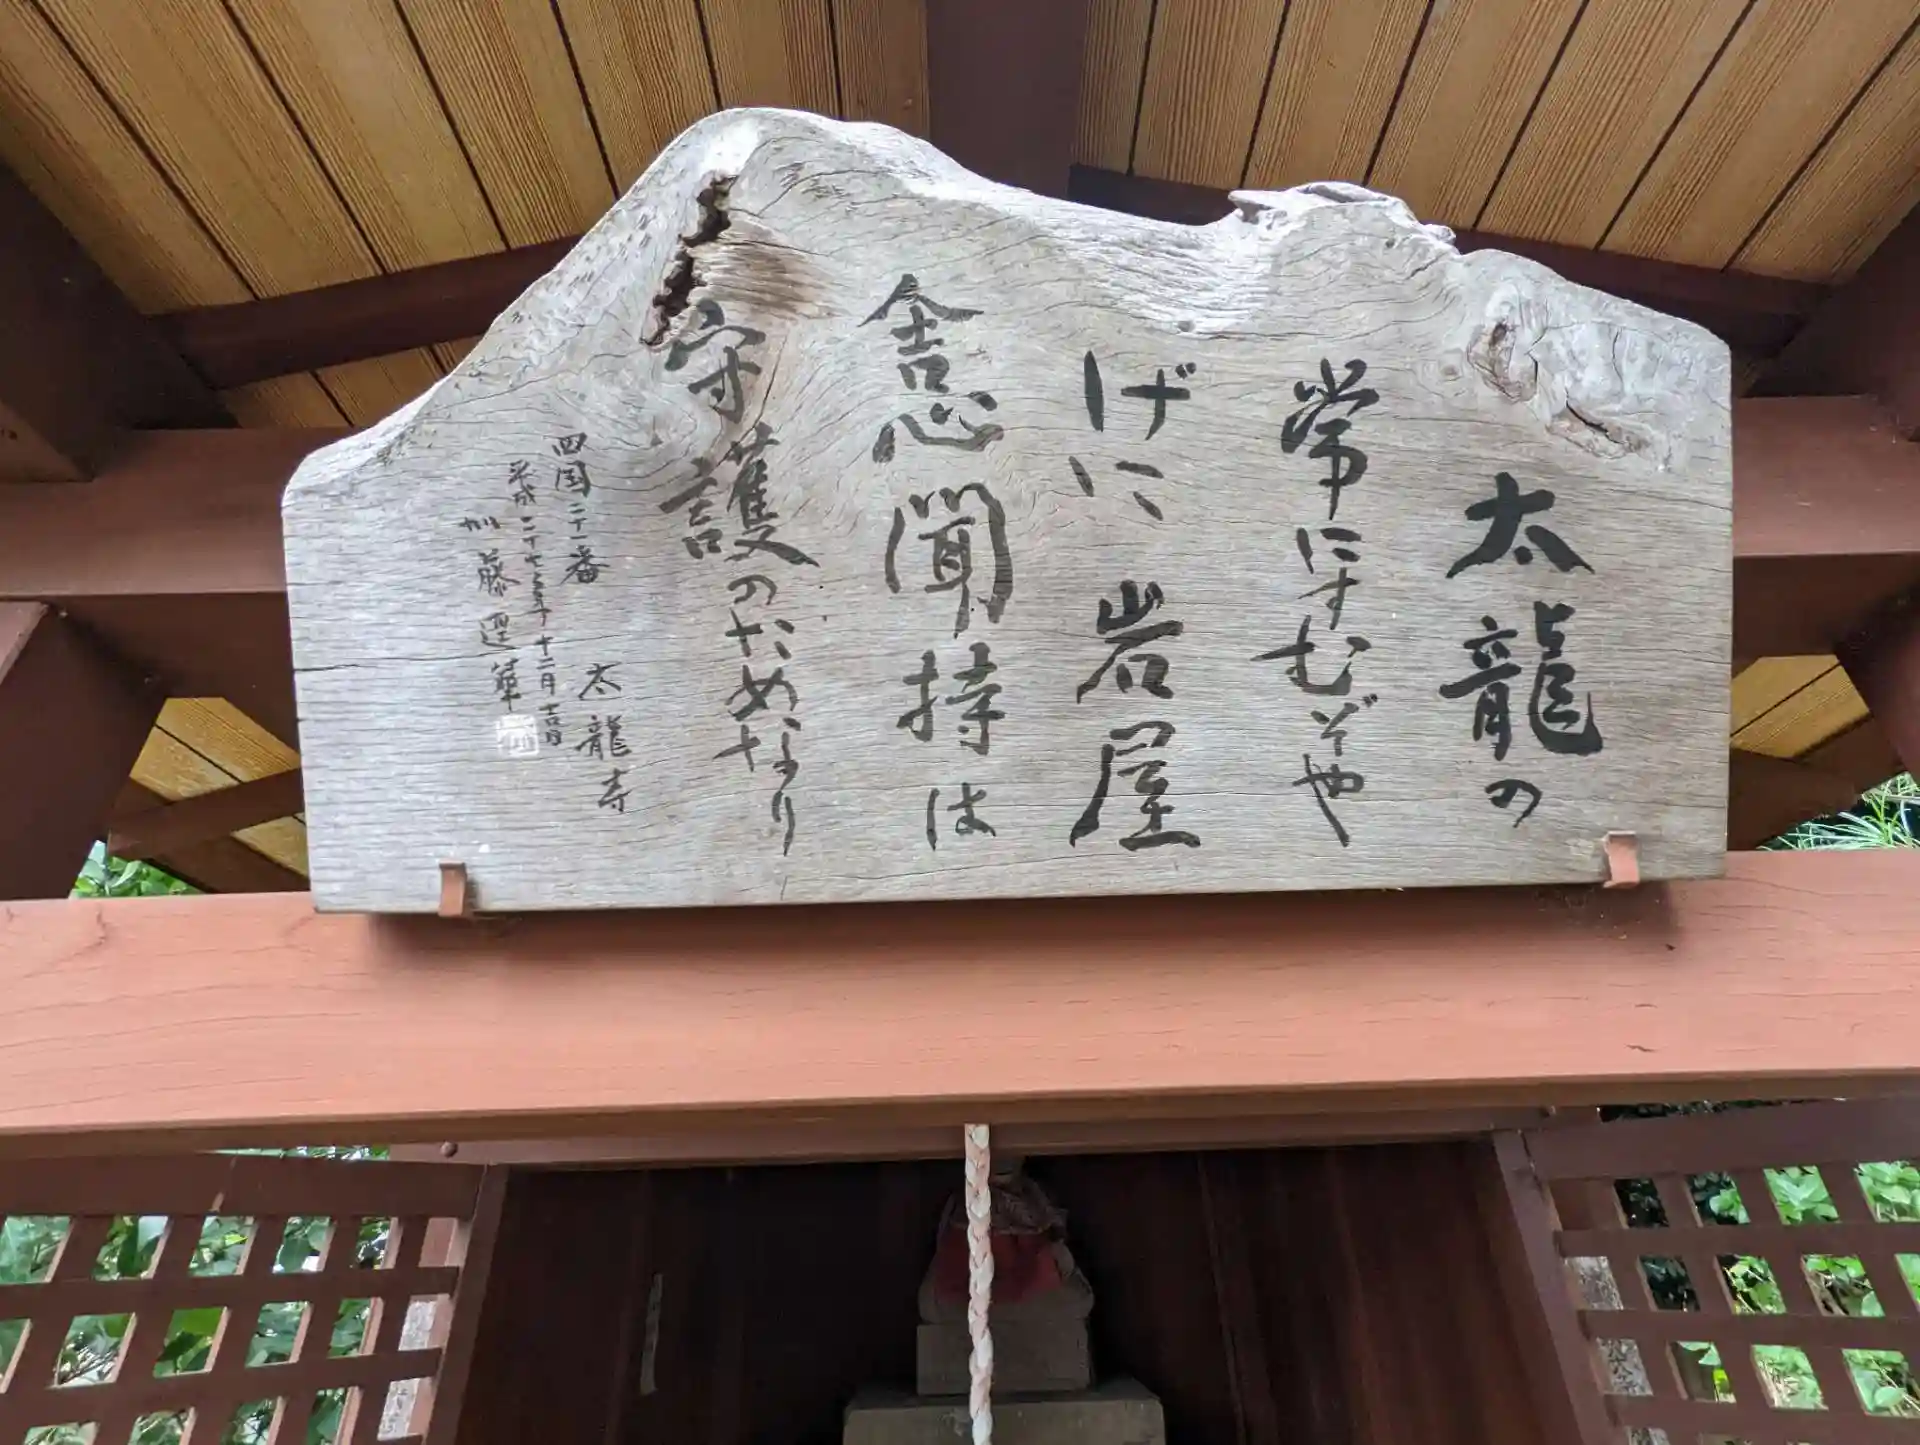 太龍の
常にすむぞや
げに岩屋
舎心聞持は
守護のためなり
四国二十一番 太龍寺
平成二十七年十二月吉日
加藤